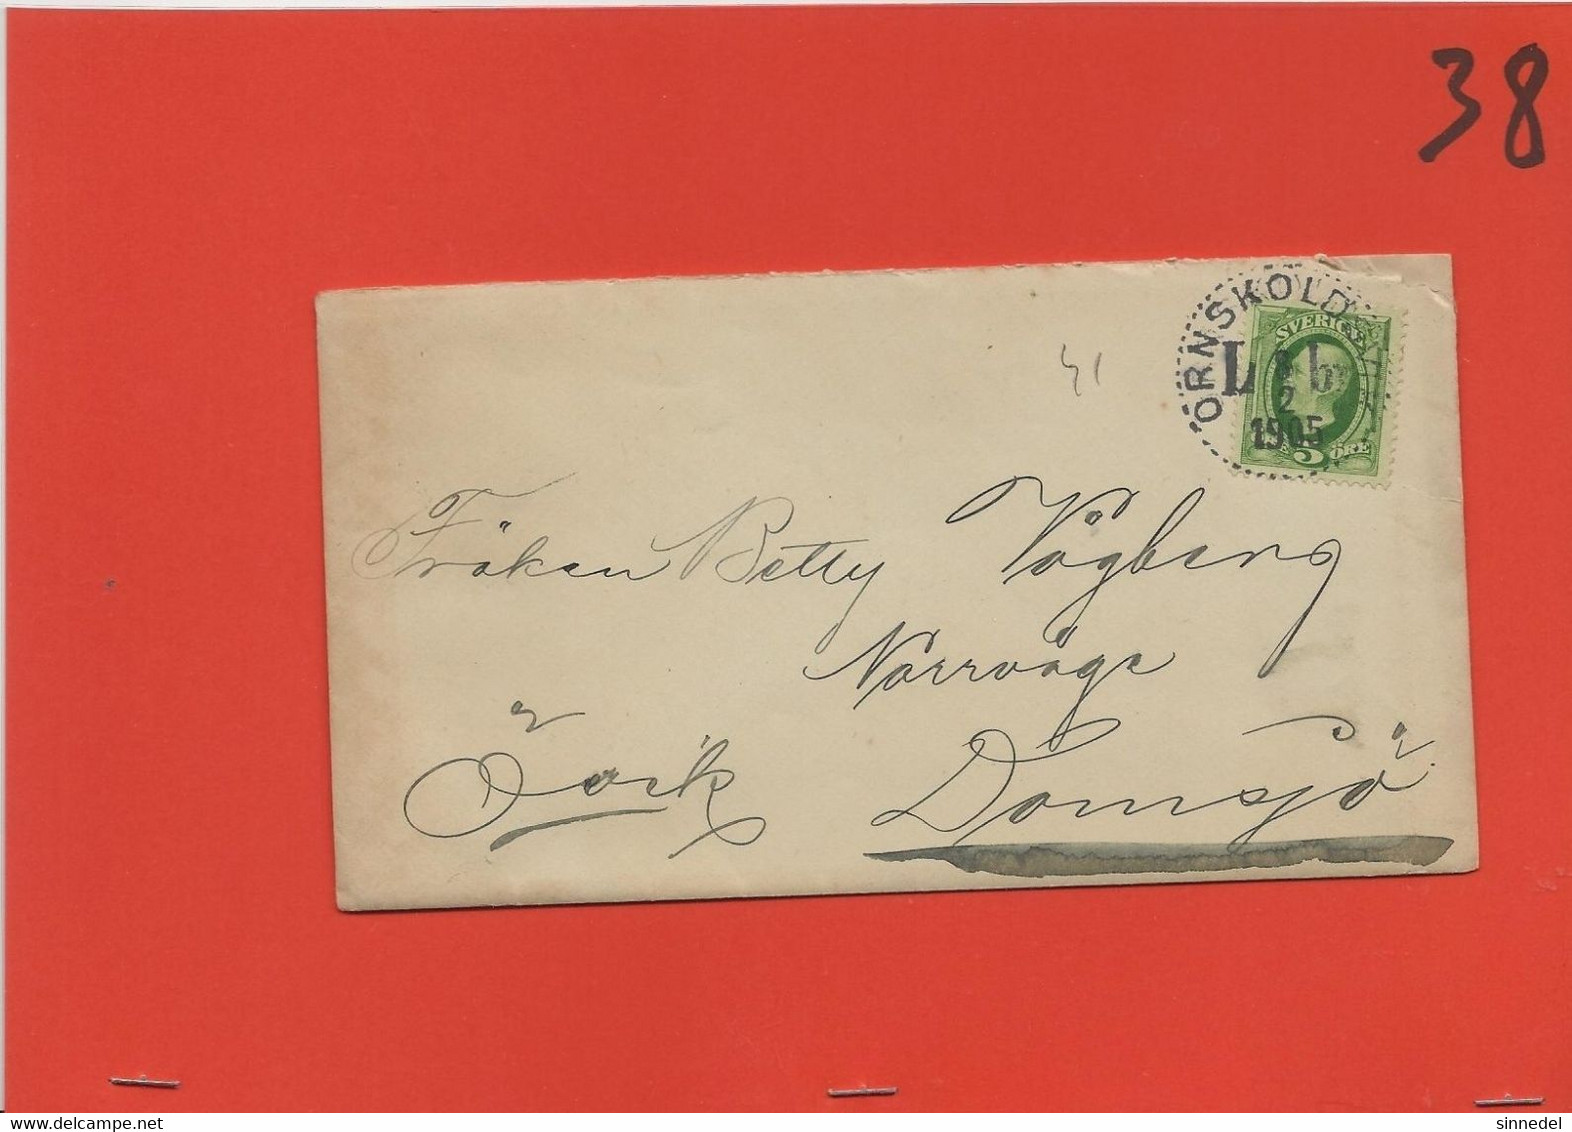 38
ÖRNSKÖLDSVIK
SVERIGE
L Br
8
2
1905
5 ÖRE
41
Fröken Betty Vägberg
Norrvåge
Ö-vik Domsjö
www.delcampe.net
sinnedel